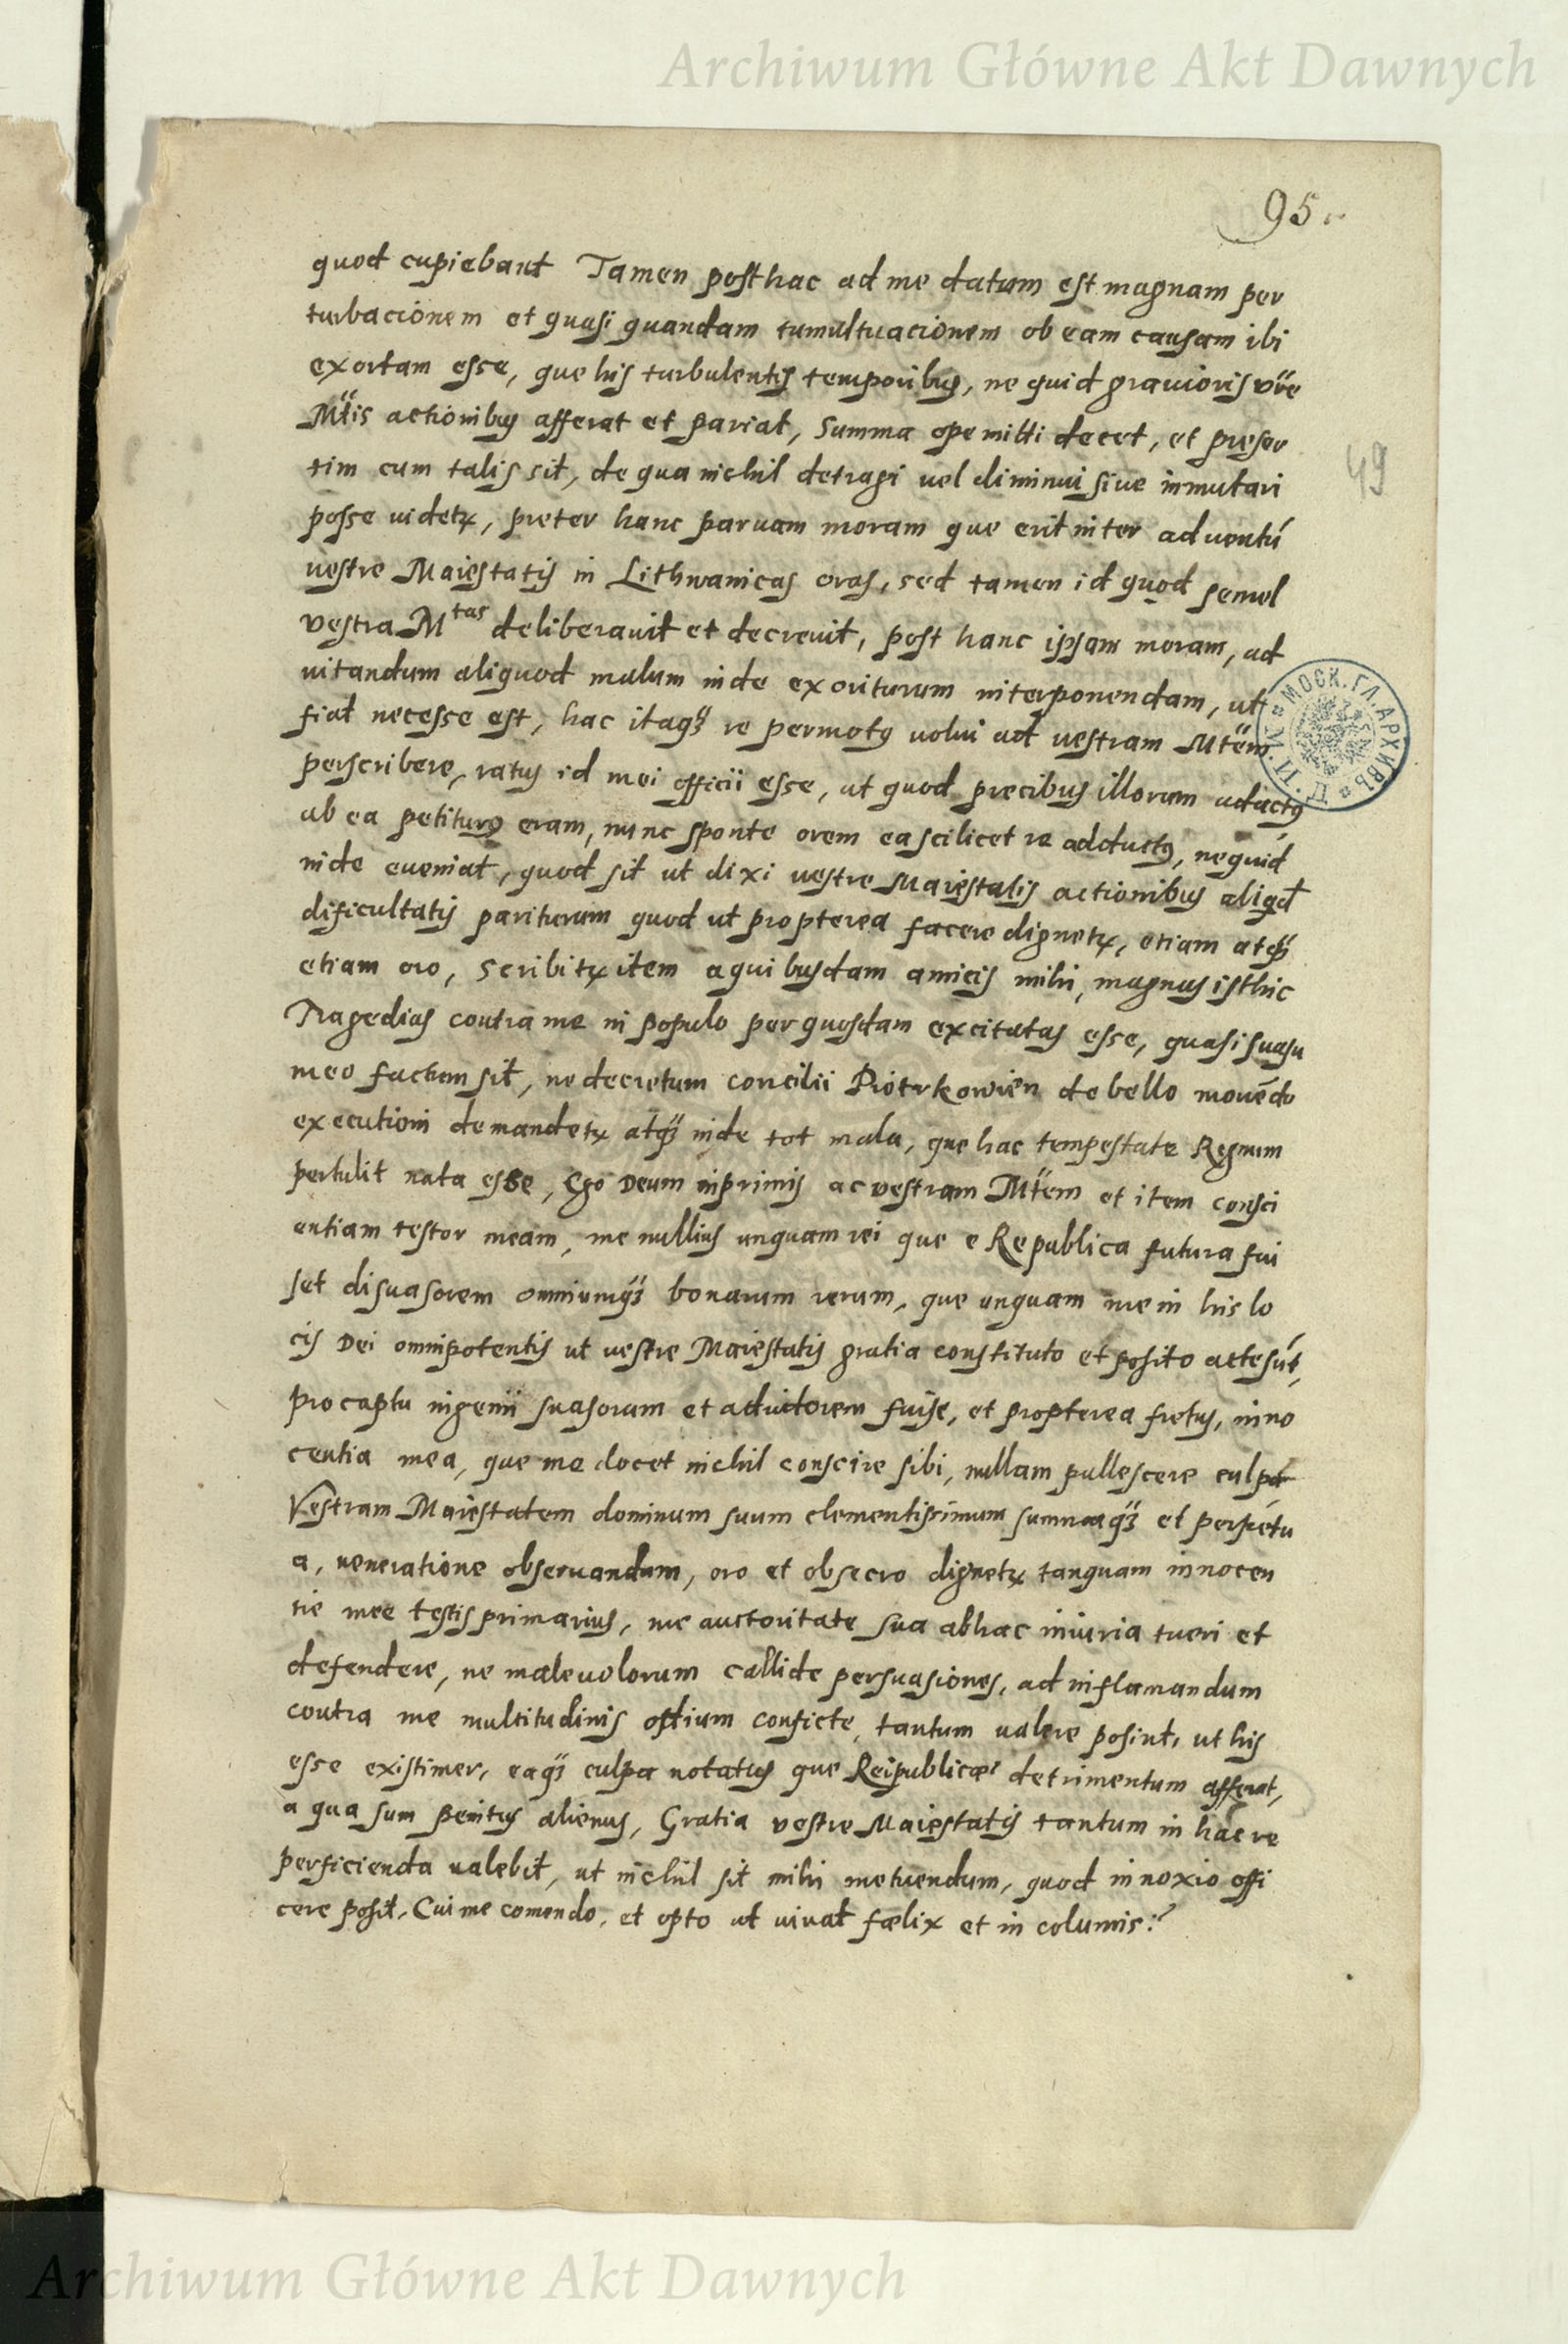 Archiwum Główne Akt Dawnych
95
quod cupiebant Tamen posthac ad me datum est magnam per
turbacionem et quasi quandam tumultuacionem ob eam causam ibi
exortam esse, que his turbulentis temporibus, ne quid gravioris vr̃e
Mt̃is actionibus afferat et pariat, summa ope niti decet, et preser
tim cum talis sit, de qua nichil detragi vel diminui sive inmutari
49
posse videtr, preter hanc parvam moram que erit inter adventũ
vestre Maiestatis in Lithwanicas oras, sed tamen id quod semel
vestra Mtas deliberavit et decrevit, post hanc ipsam moram, ad
vitandum aliquod malum inde exoriturum interponendam, ut
fiat necesse est, hac itaqz re permotus volui ad vestram Mt̃em
perscribere, ratus id mei officii esse, ut quod precibus illorum adactus
ab ea petiturus eram, nunc sponte orem ea scilicet re adductus, nequid
inde eveniat, quod sit ut dixi vestre Maiestatis actionibus aliqd
dificultatis pariturum quod ut propterea facere dignetr, etiam atqz
etiam oro, scribitr item a quibusdam amicis mihi, magnas isthic
Tragedias contra me in populo per quosdam excitatas esse, quasi suasu
meo factum sit, ne decretum concilii Piotrkowien̄ de bello movẽdo
executioni demandetr atqz inde tot mala, que hac tempestate Regnum
pertulit nata esse, Ego Deum inprimis ac vestram Mt̃em et item consci
entiam testor meam, me nullius unquam rei que e Republica futura fui
set disuasorem omniumqz bonarum rerum, que unquam me in his lo
cis Dei omnipotentis ut vestre Maiestatis gratia constituto et posito actesũt,
pro captu ingenii suasorum et adiutorem fuise, et propterea fretus, inno
centia mea, que me docet nichil conscire sibi, nullam pallescere culpa
Vestram Maiestatem dominum suum clementissimum summaqz et perpetu
a, veneratione observandum, oro et obsecro dignetr tanquam innocen
tie mee testis primarius, me auctoritate sua ab hac iniuria tueri et
defendere, ne malevolorum callide persuasiones, ad inflamandum
contra me multitudinis odium conficte, tantum valere posint, ut his
esse existimer, eaqz culpa notatus que Reipublicae detrimentum afferat,
a qua sum penitus alienus, Gratia vestre Maiestatis tantum in hac re
perficienda valebit, ut nichil sit mihi metuendum, quod innoxio offi
cere posit, Cui me comendo, et opto ut vivat fœlix et in columis:
МОСК. ГЛ. АРХИВЪ
Archiwum Główne Akt Dawnych